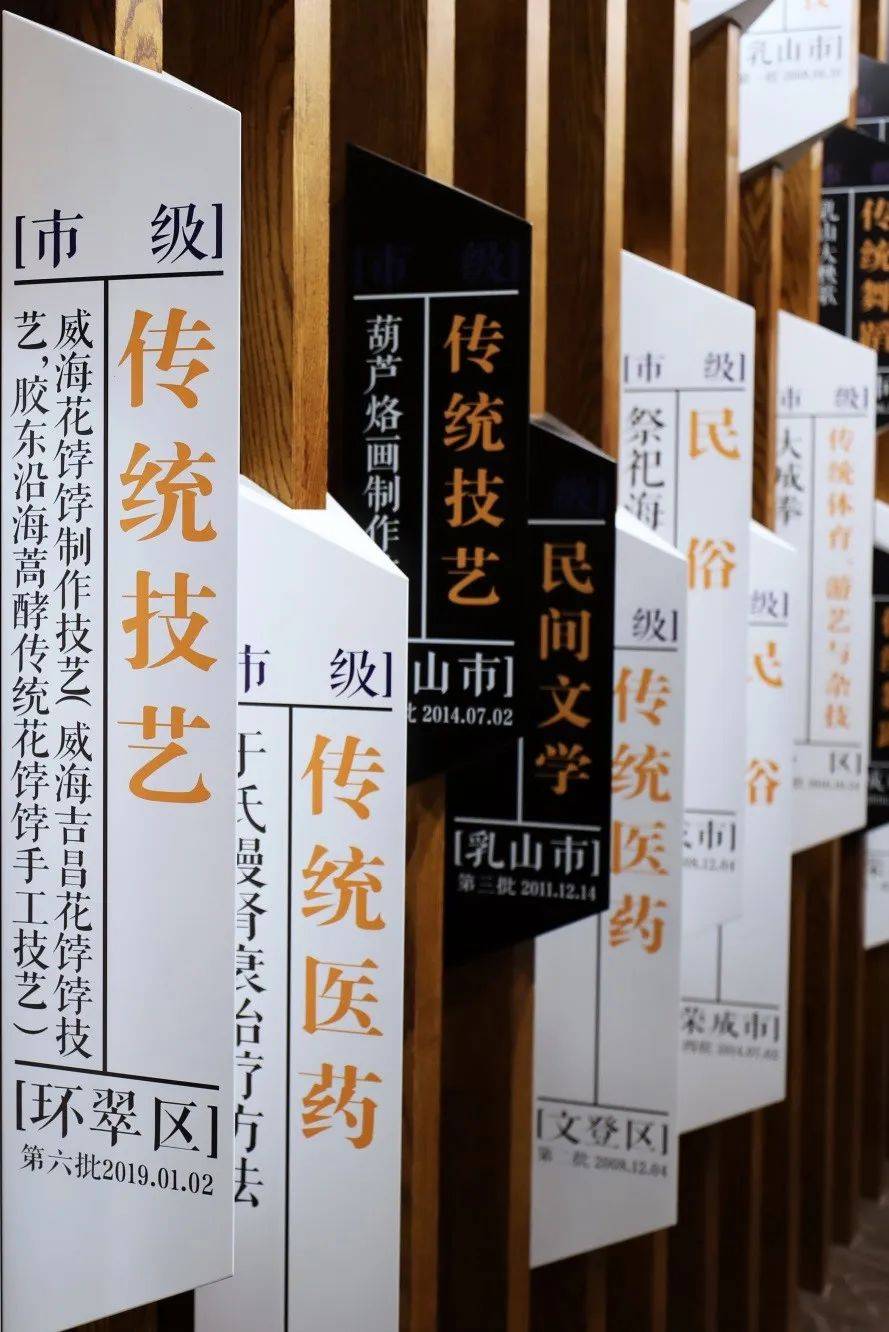 [市 级]
传统技艺
威海花饽饽制作技艺（威海吉昌花饽饽技
艺，胶东沿海蒿酵传统花饽饽手工技艺）
[环翠区]
第六批2019.01.02
市 级]
传统医药
于氏慢肾衰治疗方法
[市 级]
传统技艺
葫芦烙画制作
山市]
2014.07.02
级]
民间文学
[乳山市]
第三批 2011.12.14
级]
传统医药
[文登区]
第二批 2008.12.04
[市 级]
民俗
祭祀海
市]
08.12.04
级]
民俗
荣成市]
2014.07.02
市 级]
传统体育、游艺与杂技
大成拳
区]
乳山市]
传统舞蹈
乳山大秧歌